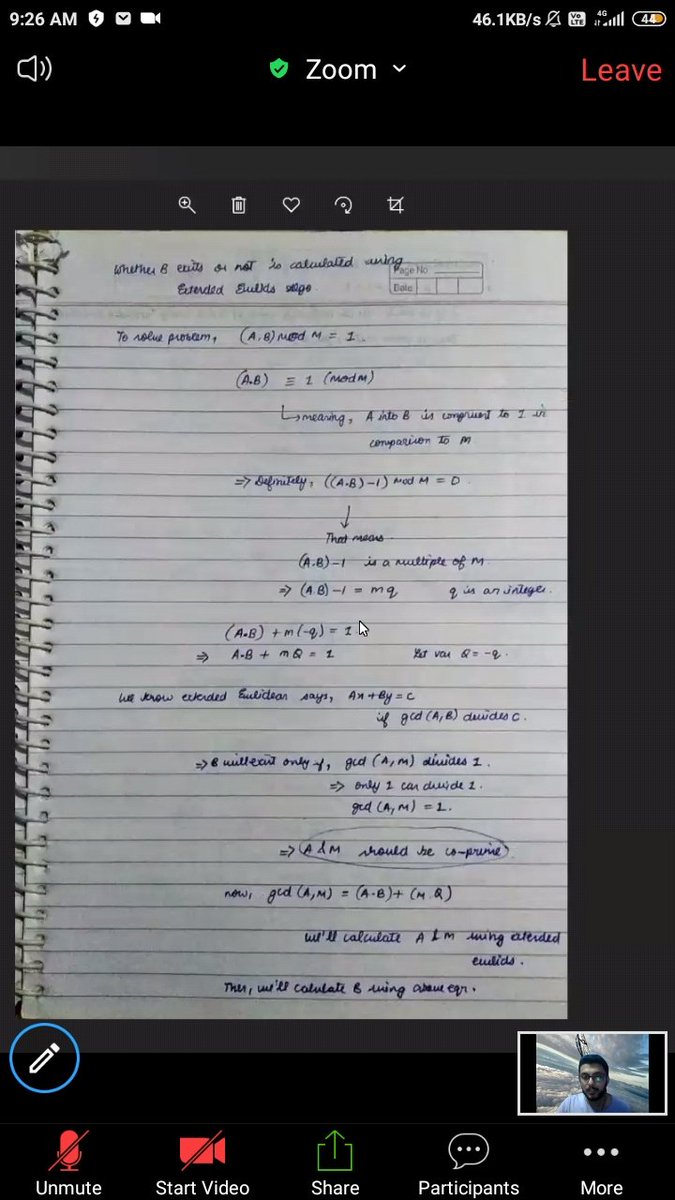 9:26 AM
46.1KB/s
Vo LTE
4G
44
Zoom
Leave
Whether B exits or not is calculated using
Page No
Extended Euclids algo.
Date
To solve problem, (A.B) mod M = 1.
(A.B) ≡ 1 (mod M)
↳ meaning, A into B is congruent to 1 in
comparison to M
=> Definitely, ((A.B)-1) mod M = 0.
↓
That means
(A.B)-1 is a multiple of M.
=> (A.B)-1 = mq q is an integer.
(A.B) + m(-q) = 1
=> A.B + mQ = 1 Let var Q = -q.
We know extended Euclidean says, Ax+By=c
if gcd(A,B) divides c.
=> B will exit only if, gcd (A,M) divides 1.
=> only 1 can divide 1.
gcd (A,M) = 1.
=> A & M should be co-prime
now, gcd (A,M) = (A.B)+ (M.Q)
we'll calculate A & M using extended
euclids.
Then, we'll calculate B using above eqn.
Unmute
Start Video
Share
Participants
More